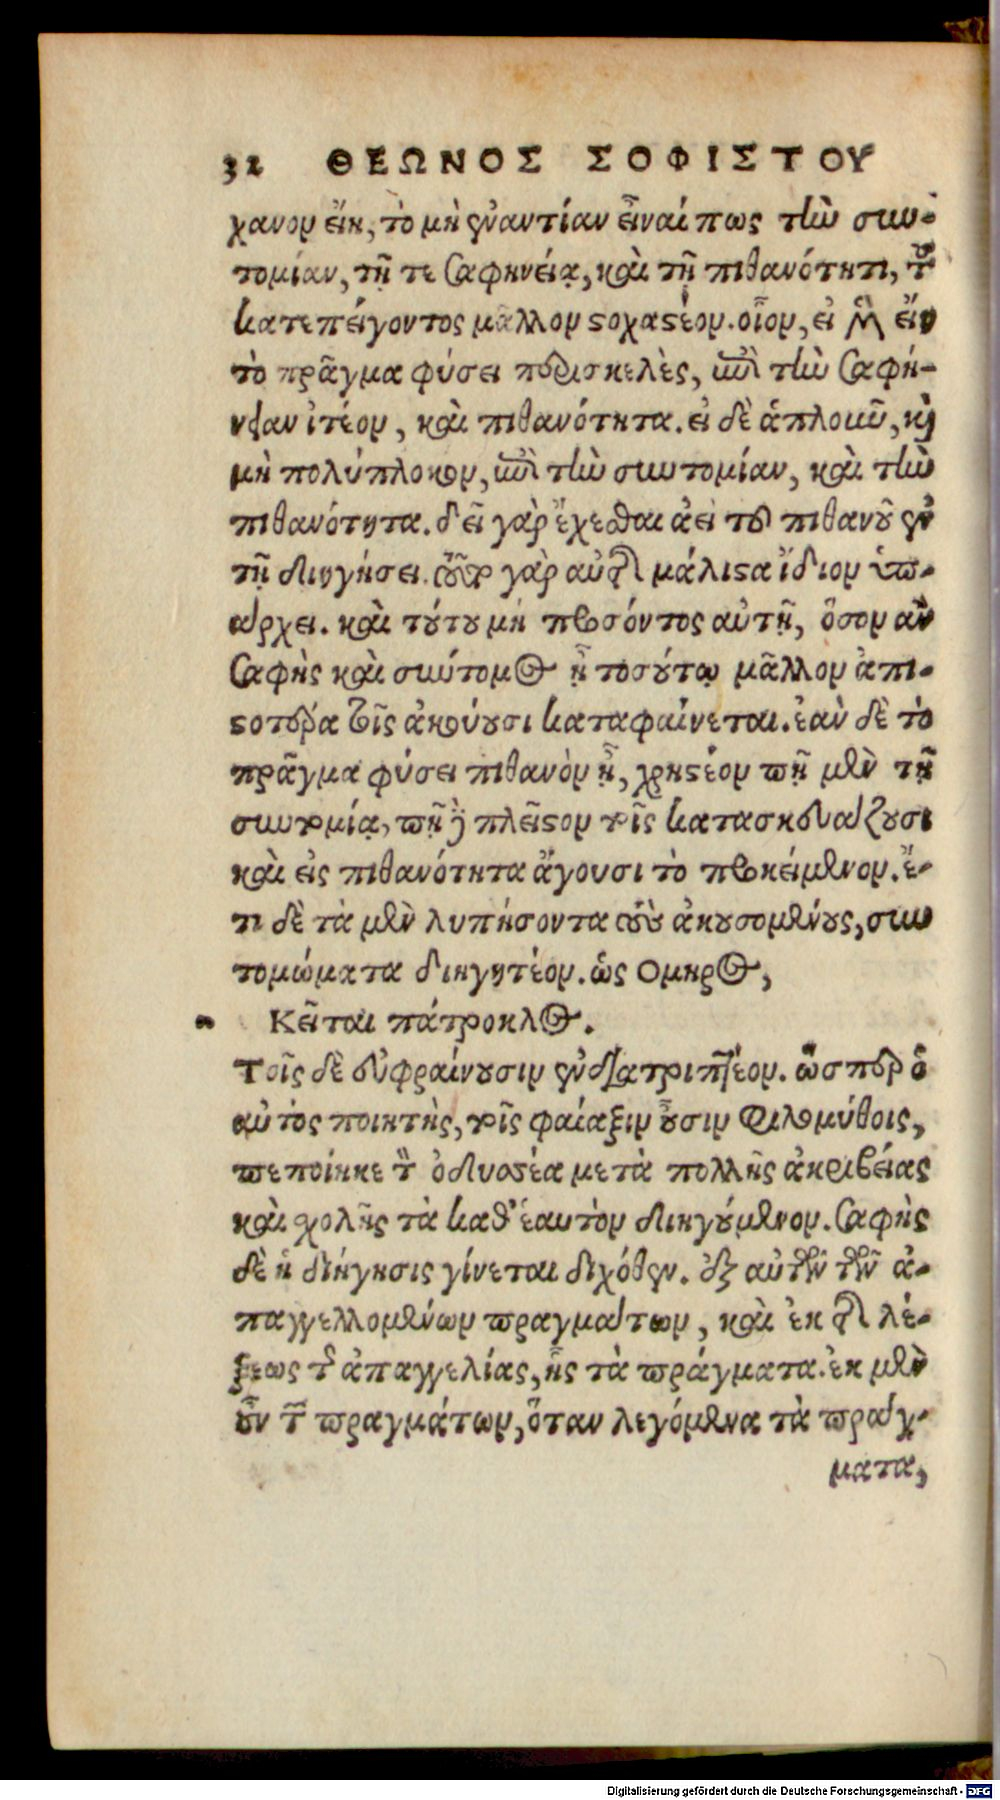 32 ΘΕΩΝΟΣ ΣΟΦΙΣΤΟΥ
χανον εἴη, τὸ μὴ ἐναντίαν εἶναί πως τὴν συν-
τομίαν, τῇ τε σαφηνείᾳ, καὶ τῇ πιθανότητι, τοῦ
κατεπείγοντος μᾶλλον στοχαστέον. οἷον, εἰ μὲν εἴη
τὸ πρᾶγμα φύσει περισκελὲς, ἐπὶ τὴν σαφή-
νειαν ἰτέον, καὶ πιθανότητα. εἰ δὲ ἁπλοῦν, καὶ
μὴ πολύπλοκον, ἐπὶ τὴν συντομίαν, καὶ τὴν
πιθανότητα. δεῖ γὰρ ἔχεσθαι ἀεὶ τοῦ πιθανοῦ ἐν
τῇ διηγήσει. τοῦτο γὰρ αὐτῆς μάλιστα ἴδιον ὑπ-
άρχει. καὶ τούτου μὴ προσόντος αὐτῇ, ὅσον ἂν
σαφὴς καὶ σύντομος ᾖ τοσούτῳ μᾶλλον ἀπι-
στοτέρα τοῖς ἀκούουσι καταφαίνεται. ἐὰν δὲ τὸ
πρᾶγμα φύσει πιθανὸν ᾖ, χρηστέον πῇ μὲν τῇ
συντομίᾳ, πῇ δὲ πλεῖστον τοῖς κατασκευάζουσι
καὶ εἰς πιθανότητα ἄγουσι τὸ προκείμενον. ἔ-
τι δὲ τὰ μὲν λυπήσοντα τοὺς ἀκουσομένους, συν
τομώματα διηγητέον. ὡς Ομηρος,
Κεῖται πάτροκλος.
Τοῖς δὲ εὐφραίνουσιν ἐνδιατριπτέον. ὥσπερ ὁ
αὐτὸς ποιητὴς, τοῖς φαίαξιν οὖσιν φιλομύθοις,
πεποίηκε τὸν ὀδυσέα μετὰ πολλῆς ἀκριβείας
καὶ χολῆς τὰ καθ' ἑαυτὸν διηγούμενον. σαφὴς
δὲ ἡ διήγησις γίνεται διχόθεν. ἐξ αὐτῶν τῶν ἀ-
παγγελλομένων πραγμάτων, καὶ ἐκ τῆς λέ-
ξεως τῆς ἀπαγγελίας, ἧς τὰ πράγματα. ἐκ μὲν
οὖν τῶν πραγμάτων, ὅταν λεγόμενα τὰ πράγ-
ματα,
Digitalisierung gefördert durch die Deutsche Forschungsgemeinschaft - DFG